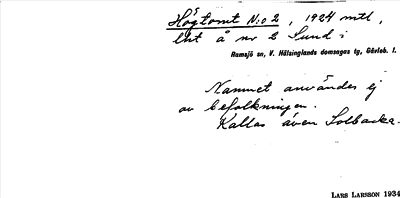 Högtomt No 2, 1924 mtl,
lht å nr 2 Sund i
Ramsjö sn, V. Hälsinglands domsagas tg, Gävleb. l.
Namnet användes ej
av befolkningen.
Kallas även Solbacka.
LARS LARSSON 1934